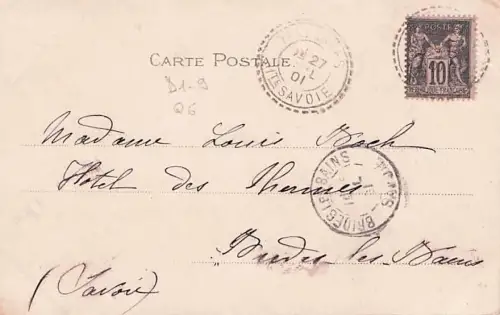 CARTE POSTALE
27
01
Hte SAVOIE
POSTE
10
REPUBLIQUE FRANCAISE
D1-9
Q6
Madame Louis Bach
Hotel des Thermes
BRIDES-LES-BAINS
SAVOIE
Brides les Bains
(Savoie)